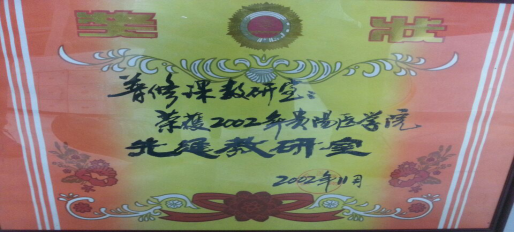 奖状
普修课教研室:
荣获2002年贵阳医学院
先进教研室
2002年11月